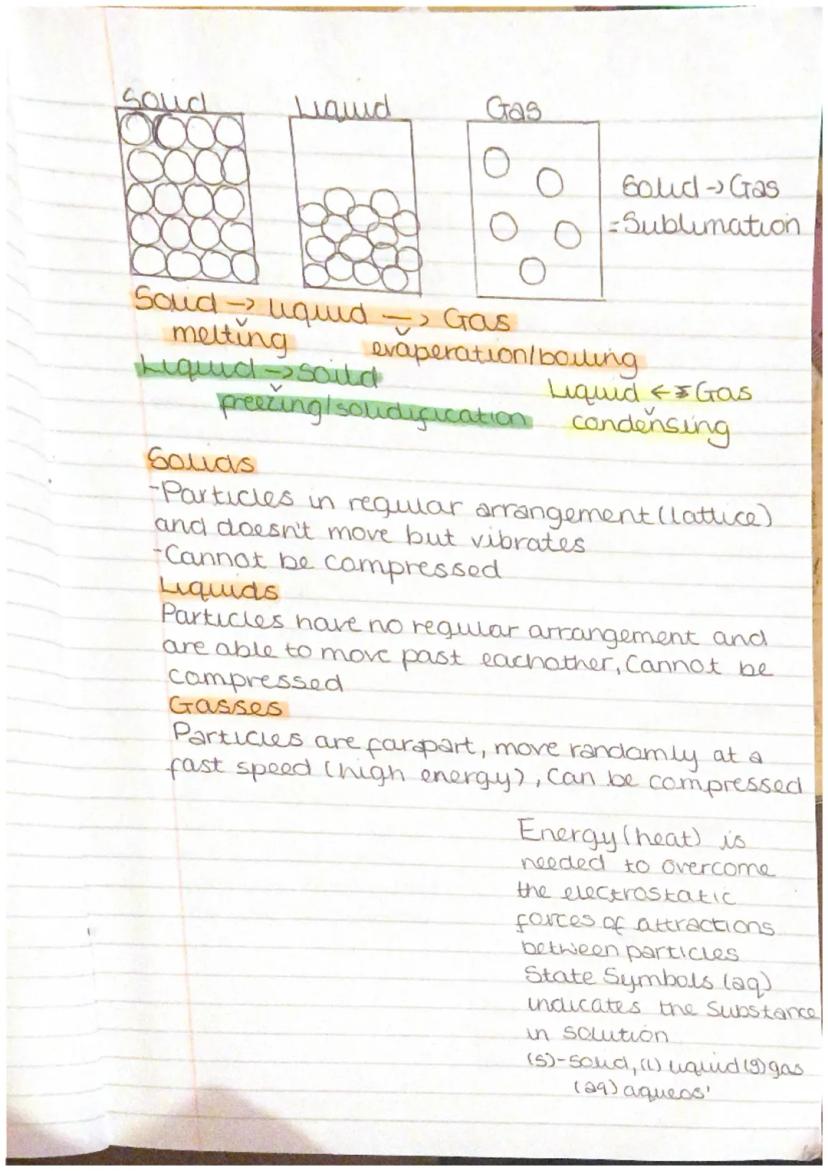 Solid
Liquid
Gas
Solid → Gas
= Sublimation
Solid → Liquid → Gas
melting
evaperation/boiling
Liquid → Solid
freezing/solidification
Liquid ← Gas
condensing
Solids
-Particles in regular arrangement (lattice)
and doesn't move but vibrates
-Cannot be compressed
Liquids
Particles have no regular arrangement and
are able to move past eachother, Cannot be
compressed
Gasses
Particles are farapart, move randomly at a
fast speed (high energy), Can be compressed
Energy (heat) is
needed to overcome
the electrostatic
forces of attractions
between particles
State Symbols (aq)
indicates the Substance
in solution
(s)-solid, (l) liquid (g) gas
(aq) aqueos'